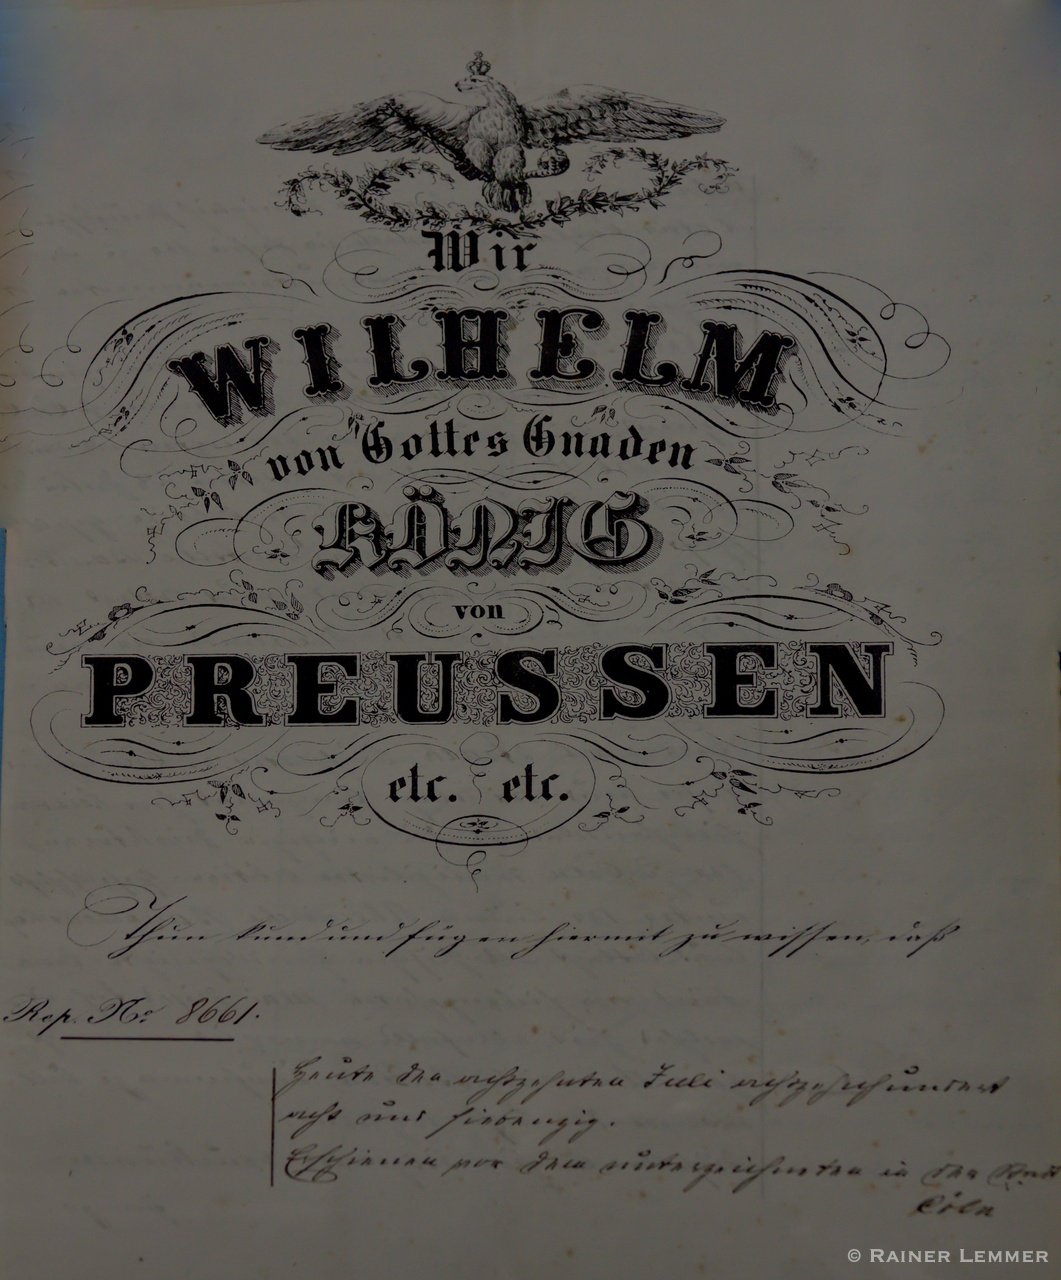 Wir
WILHELM
von Gottes Gnaden
KÖNIG
von
PREUSSEN
etc. etc.
Thun kund und fügen hiermit zu wissen, daß
Rep. No 8661.
Heute den achtzehnten Juli achtzehnhundert
acht und siebenzig.
Erschienen vor dem unterzeichneten in der Stadt
Cöln
© RAINER LEMMER